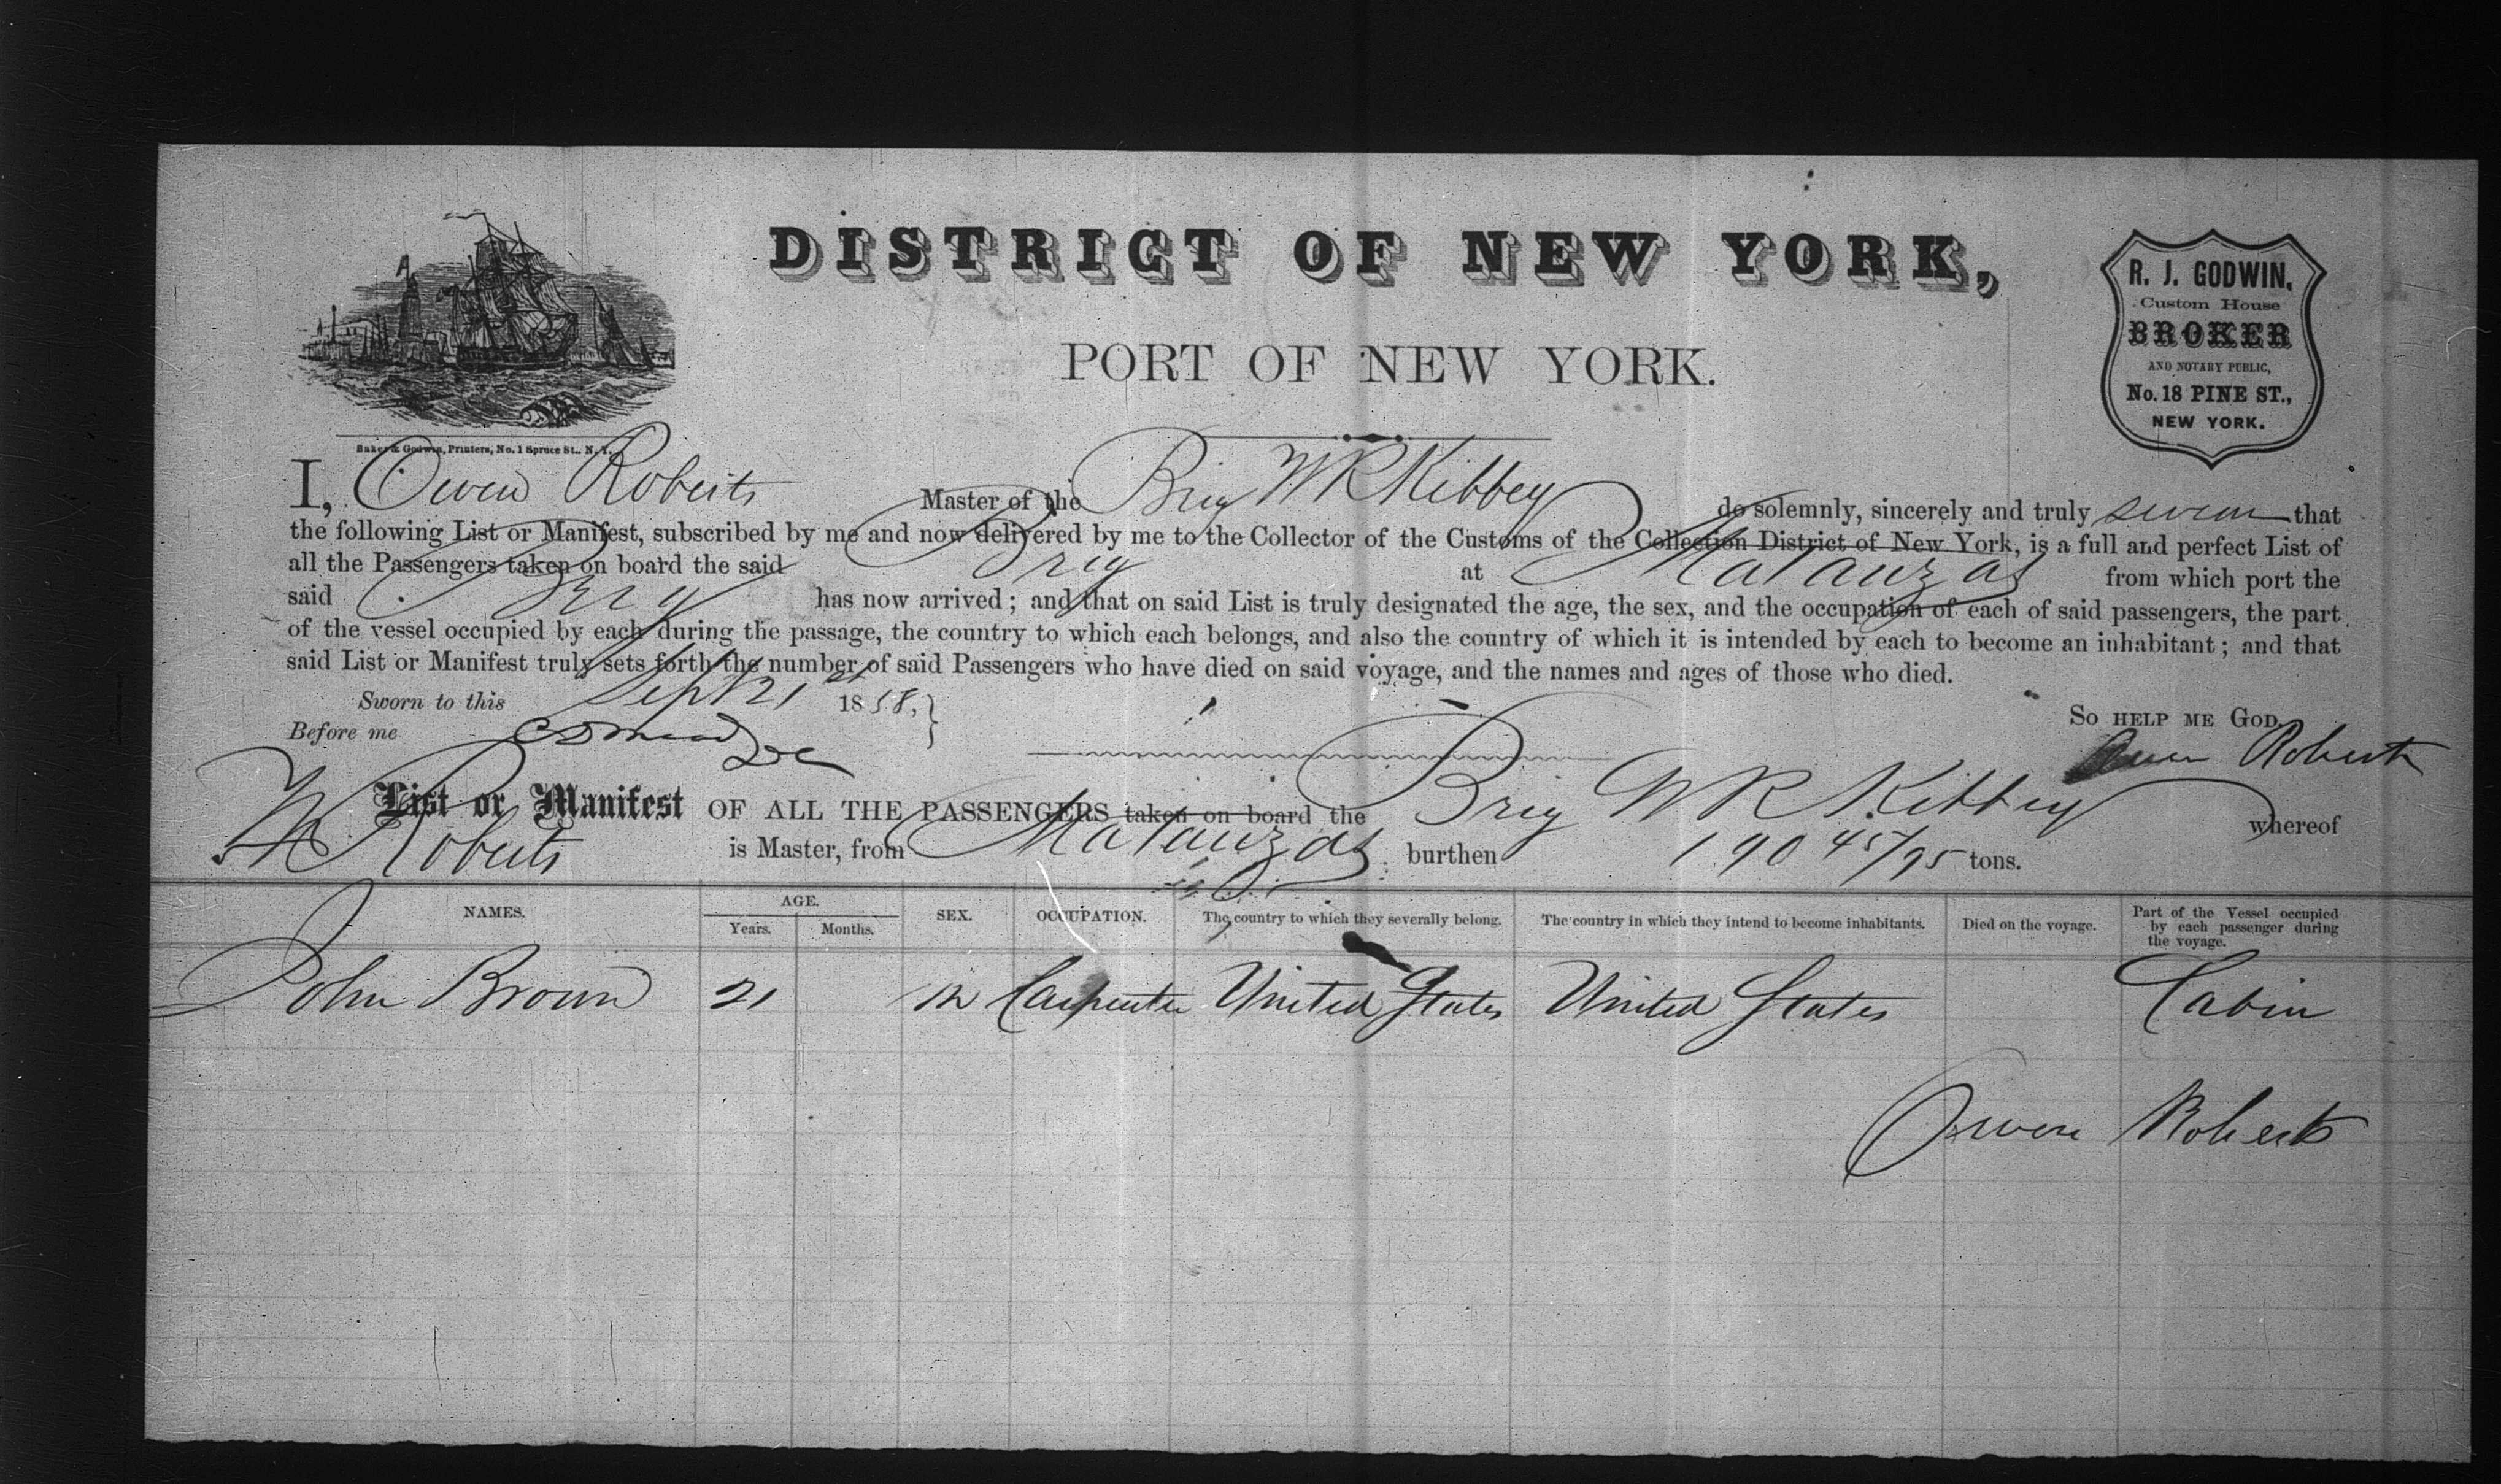 DISTRICT OF NEW YORK,
PORT OF NEW YORK.
R. J. GODWIN,
Custom House
BROKER
AND NOTARY PUBLIC,
No. 18 PINE ST.,
NEW YORK.
Baker & Godwin, Printers, No. 1 Spruce St., N. Y.
I, Owen Roberts Master of the Brig W R Kibbey do solemnly, sincerely and truly swear that
the following List or Manifest, subscribed by me and now delivered by me to the Collector of the Customs of the Collection District of New York, is a full and perfect List of
all the Passengers taken on board the said Brig at Matanzas from which port the
said Brig has now arrived; and that on said List is truly designated the age, the sex, and the occupation of each of said passengers, the part
of the vessel occupied by each during the passage, the country to which each belongs, and also the country of which it is intended by each to become an inhabitant; and that
said List or Manifest truly sets forth the number of said Passengers who have died on said voyage, and the names and ages of those who died.
Sworn to this Sept 21st 1858,
So HELP ME GOD
Before me
Owen Roberts
List or Manifest OF ALL THE PASSENGERS taken on board the Brig W R Kibbey whereof
Roberts is Master, from Matanzas burthen 190 45/95 tons.
NAMES. AGE. SEX. OCCUPATION. The country to which they severally belong. The country in which they intend to become inhabitants. Died on the voyage. Part of the Vessel occupied by each passenger during the voyage.
Years. Months.
John Brown 21 m Carpenter United States United States Cabin
Owen Roberts